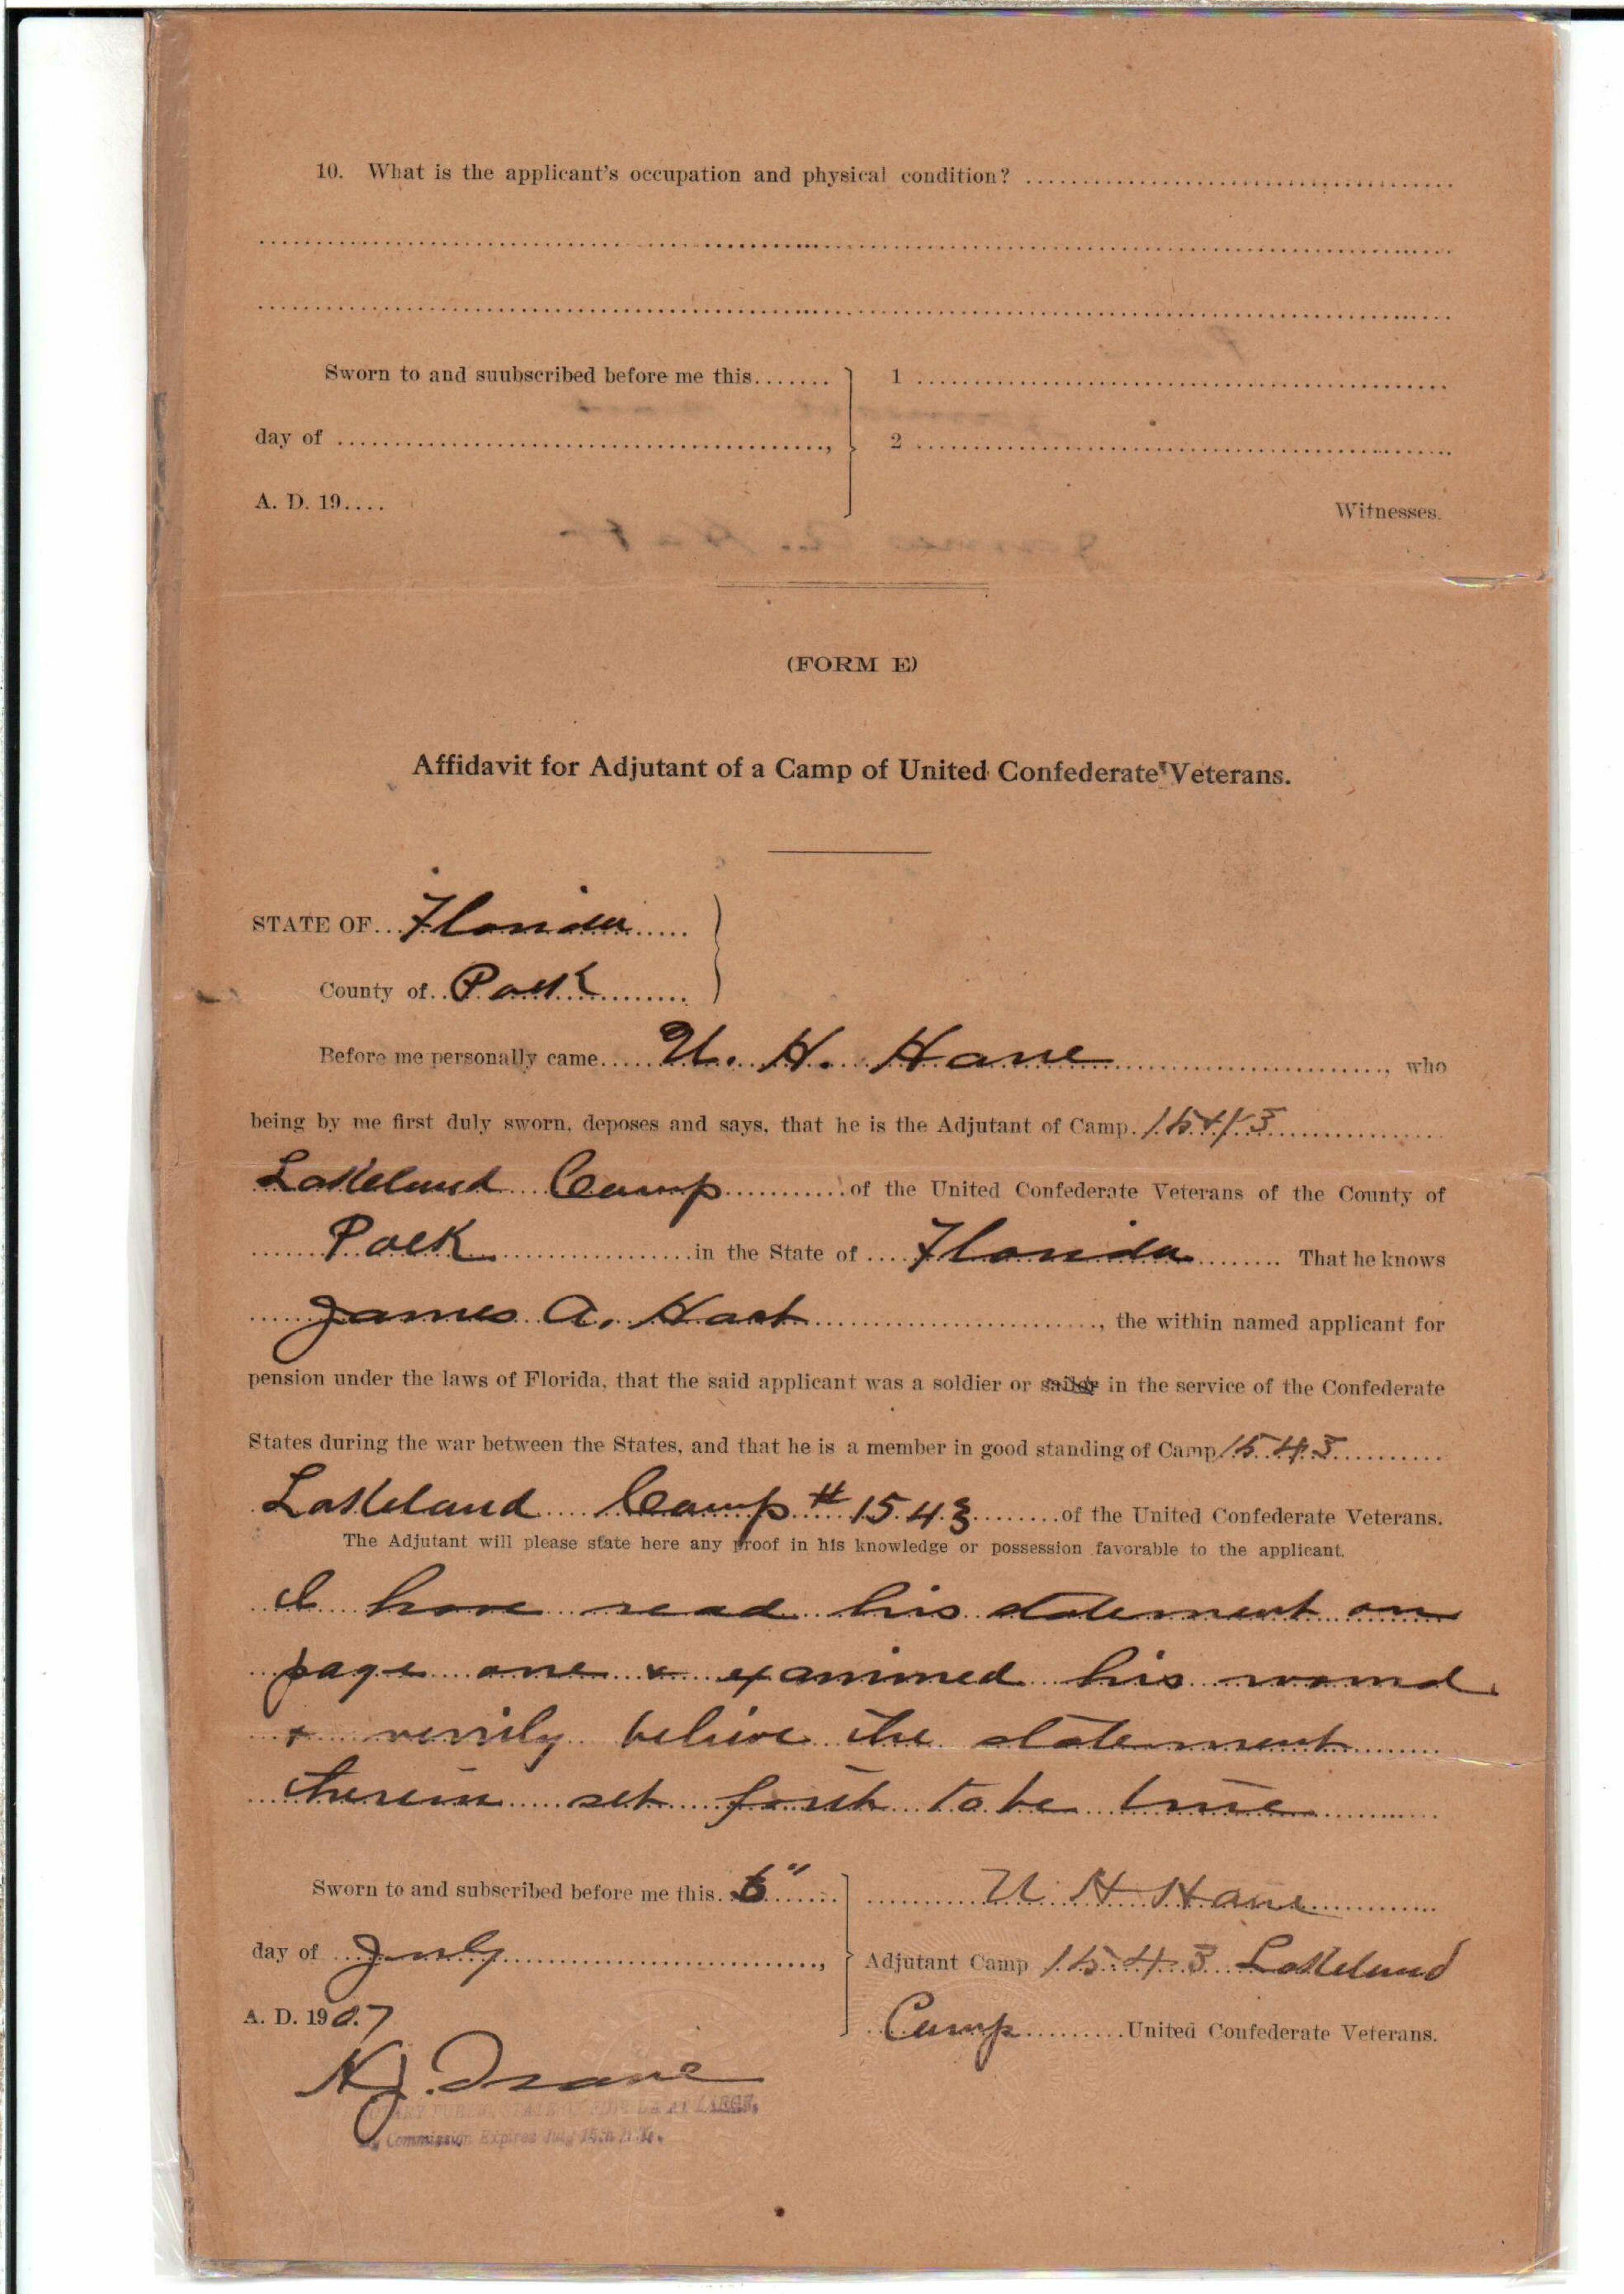 10. What is the applicant's occupation and physical condition?
Sworn to and suubscribed before me this....... 1
day of ......., 2
A. D. 19....
Witnesses.
(FORM E)
Affidavit for Adjutant of a Camp of United Confederate Veterans.
STATE OF Florida
County of Polk
Before me personally came U. H. Hane, who
being by me first duly sworn, deposes and says, that he is the Adjutant of Camp. 1543
Lakeland Camp of the United Confederate Veterans of the County of
Polk in the State of Florida That he knows
James A. Hart, the within named applicant for
pension under the laws of Florida, that the said applicant was a soldier or sailor in the service of the Confederate
States during the war between the States, and that he is a member in good standing of Camp 1543
Lakeland Camp # 1543 of the United Confederate Veterans.
The Adjutant will please state here any proof in his knowledge or possession favorable to the applicant.
I have read his statement on
page one & examined his wound
& verrily believe the statement
therein set forth to be true
Sworn to and subscribed before me this U H Hane
day of July, Adjutant Camp 1543 Lakeland
A. D. 1907 Camp United Confederate Veterans.
H J. Drane
NOTARY PUBLIC, STATE OF FLORIDA AT LARGE.
Commission Expires July 15th